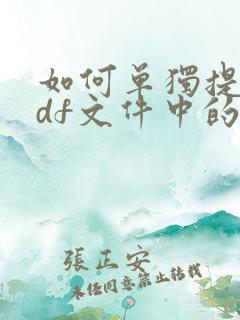 如何单獨提
df文件中的
張正安
未经同意禁止转载